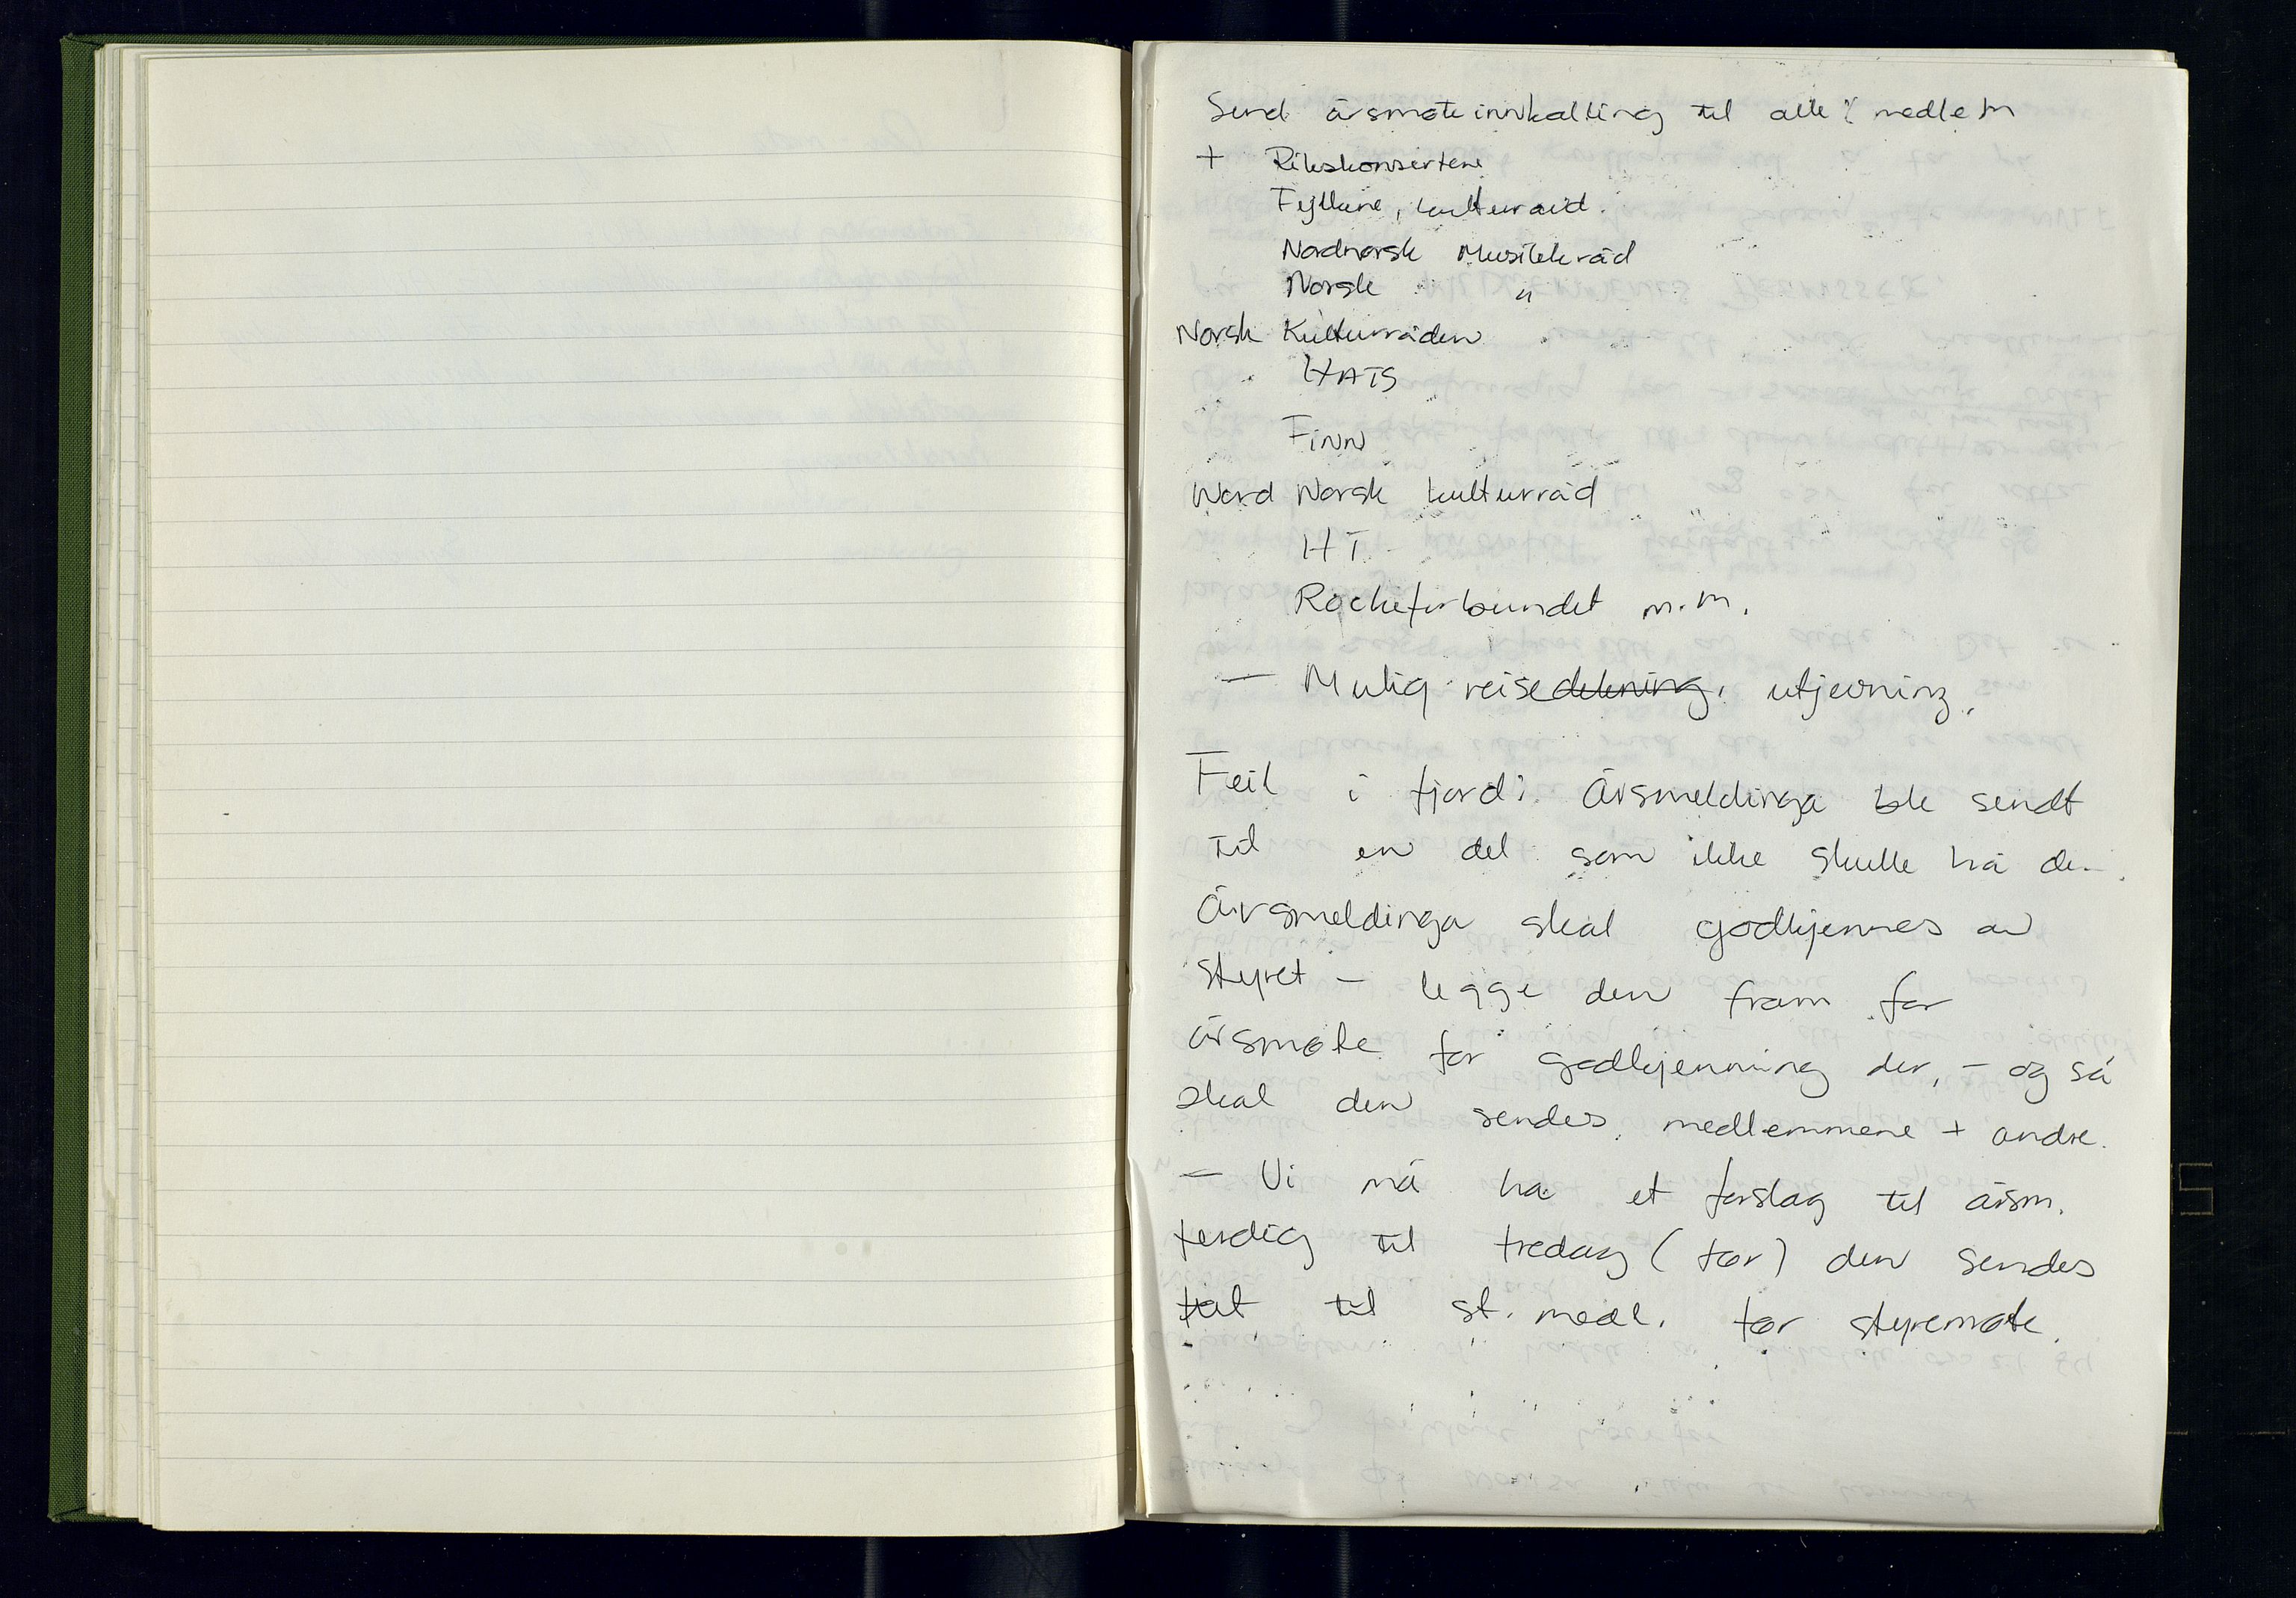 Send årsmøteinnkalling til alle medlem
+ Rikskonsertene
Fylkene, kulturavd.
Nordnorsk Musikkråd
Norsk "
Norsk Kulturråden
HATS
Finn
Nord Norsk kulturråd
HT
Rockeforbundet m.m.
- Mulig reisedekning, utjevning.
Feil i fjord: Årsmeldinga ble sendt
til en del som ikke skulle ha den.
Årsmeldinga skal godkjennes av
styret - legge den fram for
årsmøte for godkjenning der, - og så
skal den sendes medlemmene + andre.
- Vi må ha et forslag til årsm.
ferdig til fredag (før) den sendes
til st. medl. før styremøte.